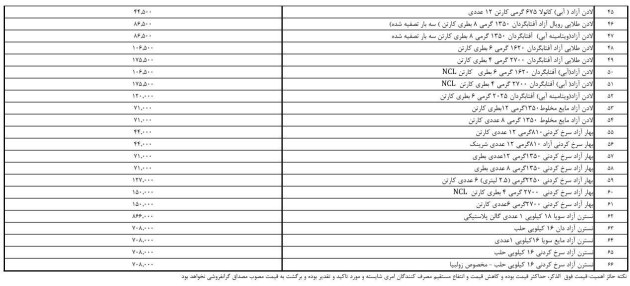 ۴۵ لادن آزاد ( آبی) کانولا ۶۷۵ گرمی کارتن ۱۲ عددی ۴۴,۵۰۰
۴۶ لادن طلایی رویال آزاد آفتابگردان ۱۳۵۰ گرمی ۸ بطری کارتن ( سه بار تصفیه شده) ۸۶,۵۰۰
۴۷ لادن آزاد(ویتامینه آبی) آفتابگردان ۱۳۵۰ گرمی ۸ بطری کارتن سه بار تصفیه شده ۸۶,۵۰۰
۴۸ لادن طلایی آزاد آفتابگردان ۱۶۲۰ گرمی ۶ بطری کارتن ۱۰۶,۵۰۰
۴۹ لادن طلایی آزاد آفتابگردان ۲۷۰۰ گرمی ۴ بطری کارتن ۱۷۵,۵۰۰
۵۰ لادن آزاد(آبی) آفتابگردان ۱۶۲۰ گرمی ۶ بطری کارتن NCL ۱۰۶,۵۰۰
۵۱ لادن آزاد(آبی) آفتابگردان ۲۷۰۰ گرمی ۴ بطری کارتن NCL ۱۷۵,۵۰۰
۵۲ لادن آزاد(ویتامینه آبی) آفتابگردان ۲۰۲۵ گرمی ۶ بطری کارتن ۱۲۰,۰۰۰
۵۳ لادن آزاد مایع مخلوط ۱۳۵۰ گرمی ۱۲بطری کارتن ۷۱,۰۰۰
۵۴ لادن آزاد مایع مخلوط ۱۳۵۰ گرمی ۸ عددی کارتن ۷۱,۰۰۰
۵۵ بهار آزاد سرخ کردنی۸۱۰گرمی ۱۲ عددی کارتن ۴۴,۰۰۰
۵۶ بهار سرخ کردنی آزاد ۸۱۰گرمی ۱۲ عددی شرینک ۴۴,۰۰۰
۵۷ بهار آزاد سرخ کردنی ۱۳۵۰گرمی ۱۲عددی بطری ۷۱,۰۰۰
۵۸ بهار آزاد سرخ کردنی ۱۳۵۰گرمی ۸ عددی بطری ۷۱,۰۰۰
۵۹ بهار آزاد سرخ کردنی ۲۲۵۰گرمی (۲.۵ لیتری) ۶ عددی کارتن ۱۲۷,۰۰۰
۶۰ بهار آزاد سرخ کردنی ۲۷۰۰ گرمی ۴ بطری کارتن NCL ۱۵۰,۰۰۰
۶۱ بهار آزاد سرخ کردنی ۲۷۰۰گرمی ۶عددی کارتن ۱۵۰,۰۰۰
۶۲ نسترن آزاد سویا ۱۸ کیلویی ۱ عددی گالن پلاستیکی ۸۶۶,۰۰۰
۶۳ نسترن آزاد دان ۱۶ کیلویی حلب ۷۰۸,۰۰۰
۶۴ نسترن آزاد مایع سویا ۱۶کیلویی ۱عددی ۷۰۸,۰۰۰
۶۵ نسترن آزاد سرخ کردنی ۱۶ کیلویی حلب ۷۰۸,۰۰۰
۶۶ نسترن آزاد سرخ کردنی ۱۶ کیلویی حلب - مخصوص زولبیا ۷۰۸,۰۰۰
نکته حائز اهمیت قیمت فوق الذکر، حداکثر قیمت بوده و کاهش قیمت و انتفاع مستقیم مصرف کنندگان امری شایسته و مورد تاکید و تقدیر بوده و برگشت به قیمت مصوب مصداق گرانفروشی نخواهد بود